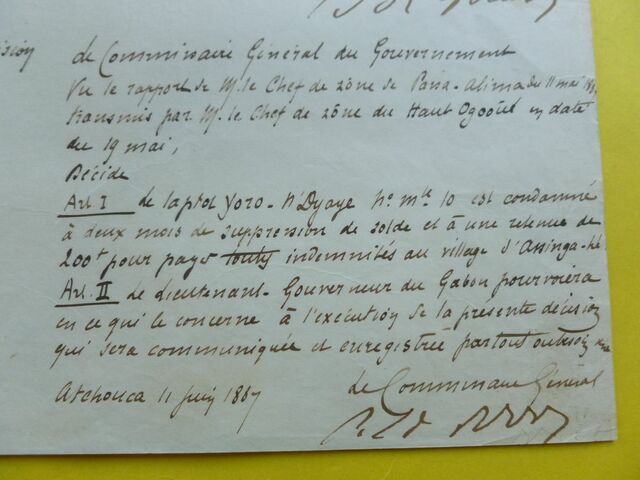 Le Commissaire Général du Gouvernement
Vu le rapport de M. le Chef de zône de Pana-Alima du 11 mai
transmis par M. le Chef de zône du Haut Ogooué en date
du 19 mai,
Décide
Art. I Le laptot Yoro-N'Dyaye No. mle 10 est condamné
à deux mois de suppression de solde et à une retenue de
200f pour payer indemnités au village d'Assinga-
Art. II Le Lieutenant-Gouverneur du Gabon pourvoiera
en ce qui le concerne à l'exécution de la présente décision
qui sera communiquée et enregistrée partout où besoin
Atchouca 11 Juin 1887
Le Commissaire Général